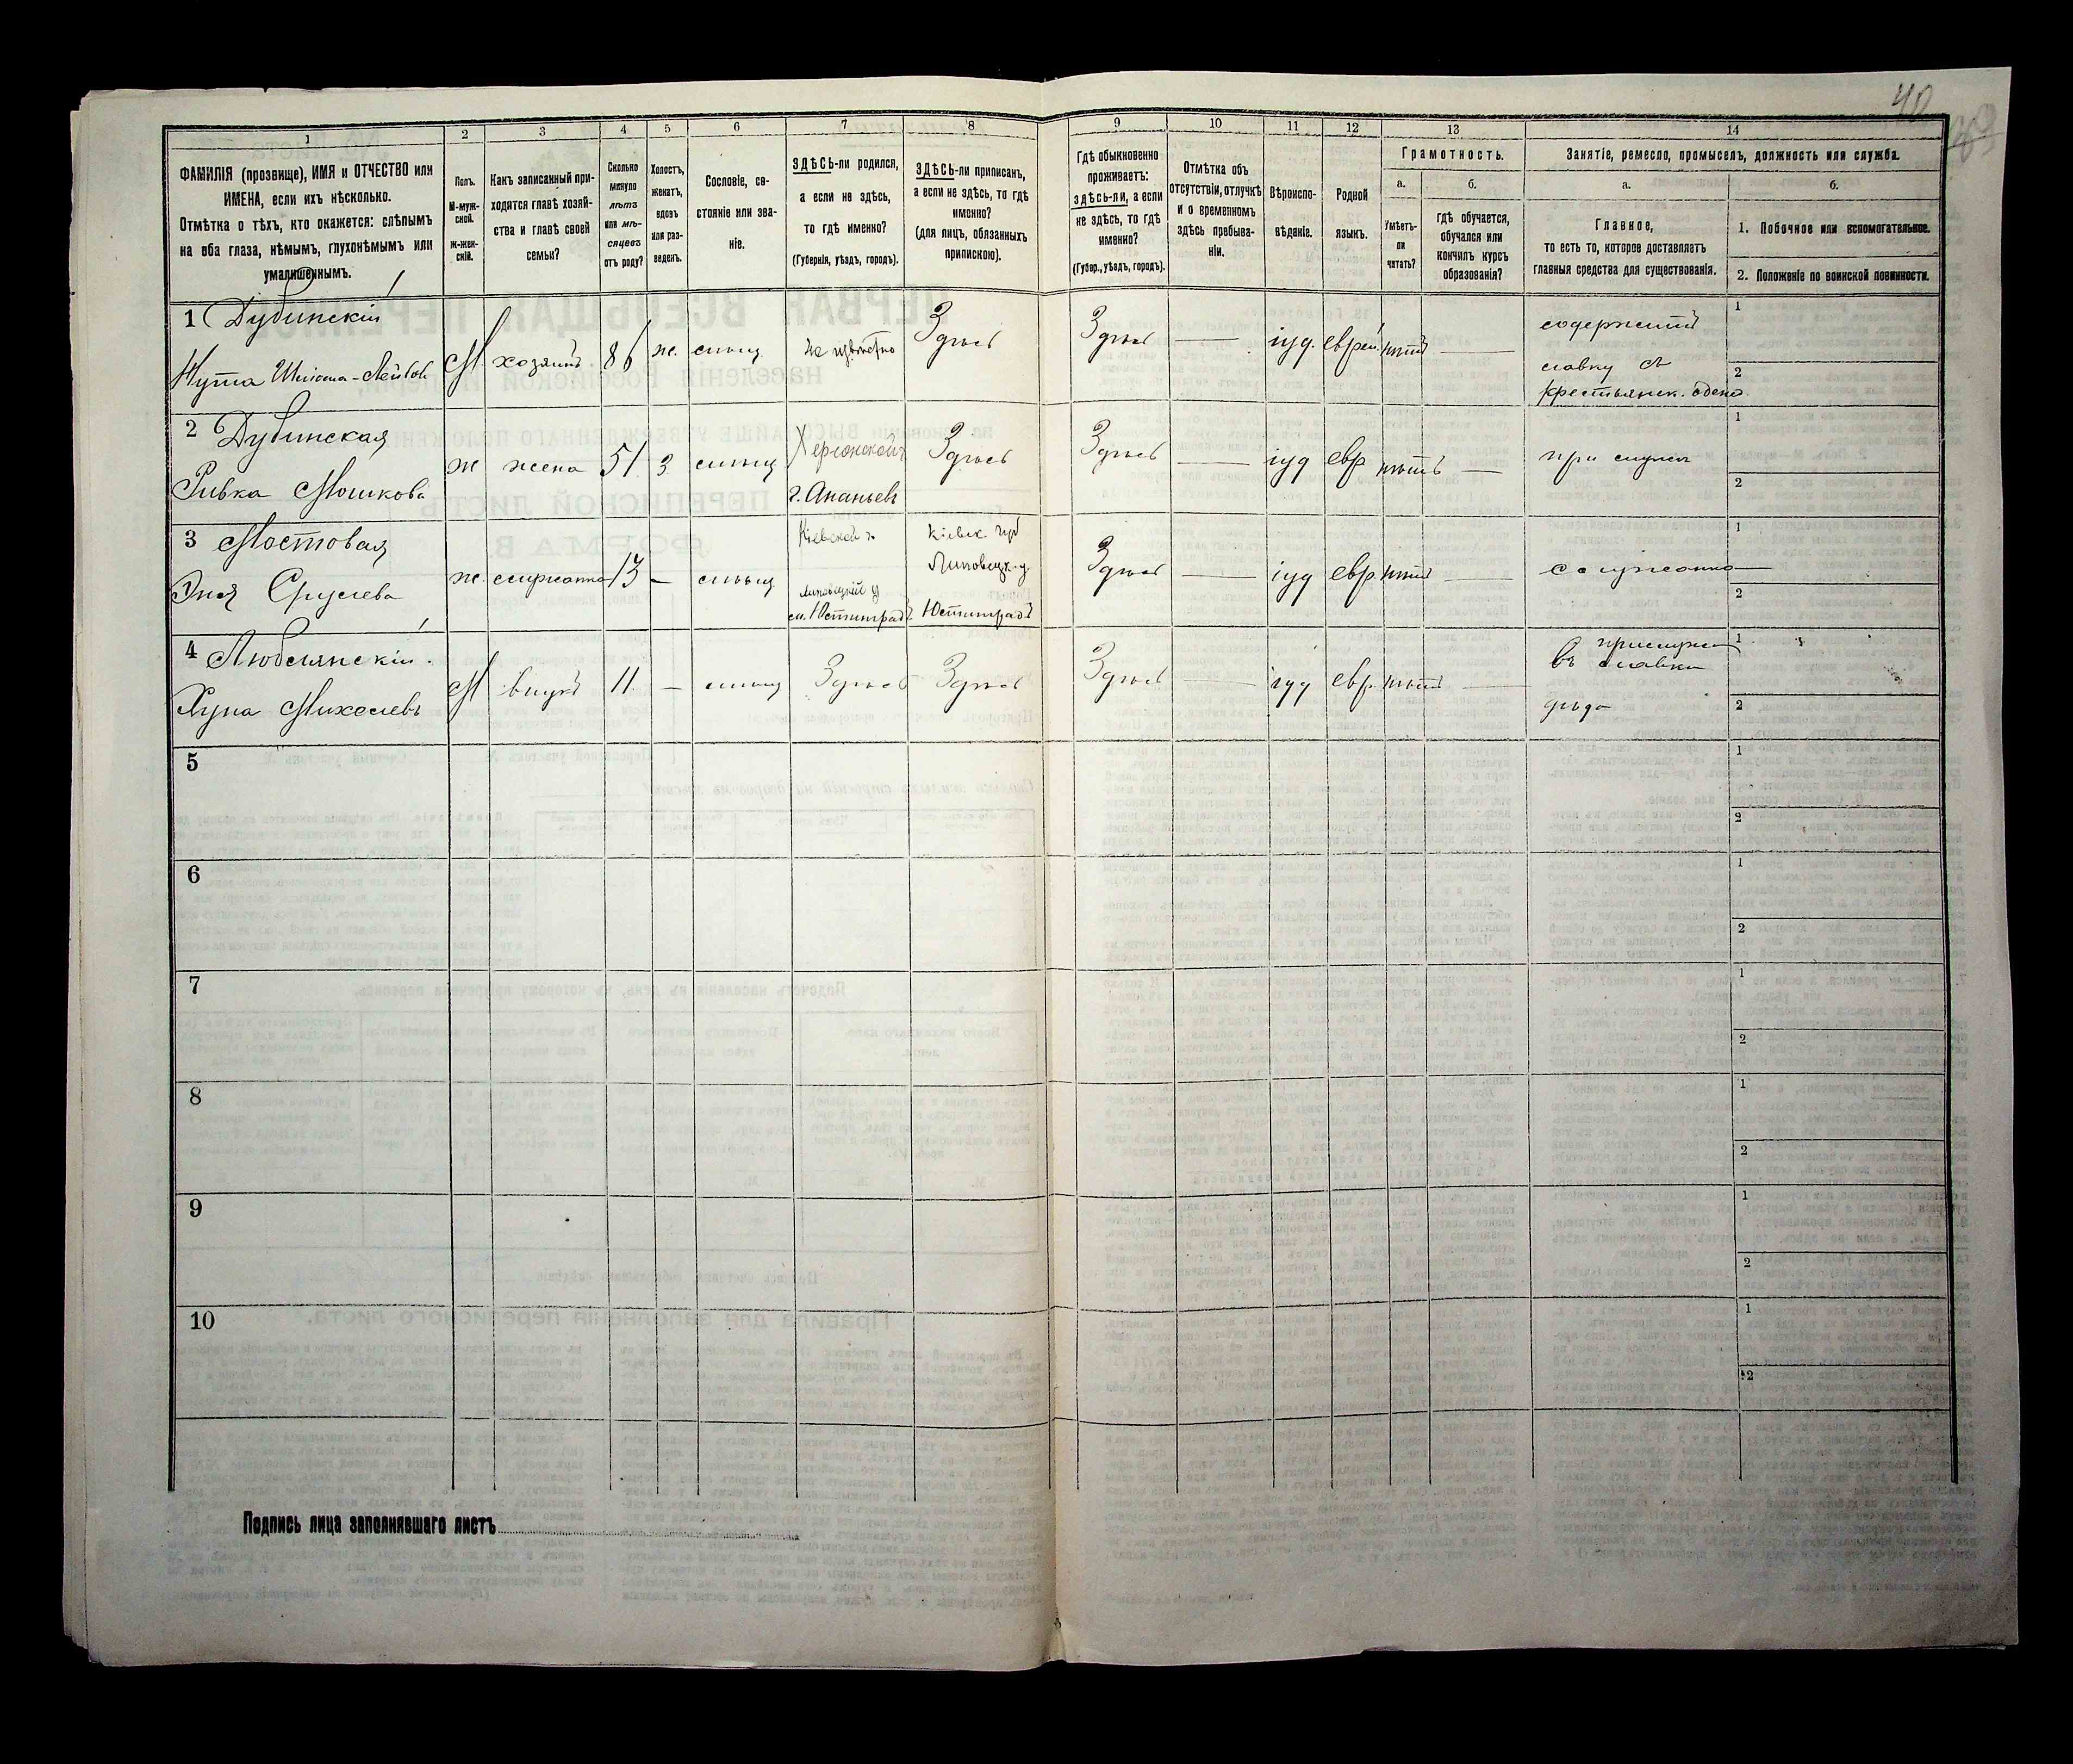 40
1 2 3 4 5 6 7 8 9 10 11 12 13 14
ФАМИЛІЯ (прозвище), ИМЯ и ОТЧЕСТВО или
ИМЕНА, если ихъ нѣсколько.
Отмѣтка о тѣхъ, кто окажется: слѣпымъ
на оба глаза, нѣмымъ, глухонѣмымъ или
умалишеннымъ.
Полъ.
М-муж-
ской.
Ж-жен-
скій.
Какъ записанный при-
ходятся главѣ хозяй-
ства и главѣ своей
семьи?
Сколько
минуло
лѣтъ
или мѣ-
сяцевъ
отъ роду?
Холостъ,
женатъ,
вдовъ
или раз-
веденъ.
Сословіе, со-
стояніе или зва-
ніе.
ЗДѢСЬ-ли родился,
а если не здѣсь,
то гдѣ именно?
(Губернія, уѣздъ, городъ).
ЗДѢСЬ-ли приписанъ,
а если не здѣсь, то гдѣ
именно?
(для лицъ, обязанныхъ
припискою).
Гдѣ обыкновенно
проживаетъ:
здѣсь-ли, а если
не здѣсь, то гдѣ
именно?
(Губер., уѣздъ, городъ).
Отмѣтка объ
отсутствіи, отлучкѣ
и о временномъ
здѣсь пребыва-
ніи.
Вѣроиспо-
вѣданіе.
Родной
языкъ.
Грамотность.
а.
Умѣетъ-
ли
читать?
б.
гдѣ обучается,
обучался или
кончилъ курсъ
образованія?
Занятіе, ремесло, промыселъ, должность или служба.
а.
Главное,
то есть то, которое доставляетъ
главныя средства для существованія.
б.
1. Побочное или вспомогательное.
2. Положеніе по воинской повинности.
1 Дубинскій
Нута Шлiома-Лейбов М хозяинъ 86 ж. мѣщ. Не извѣстно Здѣсь Здѣсь — іуд. еврей. нѣтъ — содержитъ
лавку съ
крестьянск. одеж.
1
2
2 Дубинская
Ривка Мошкова ж жена 51 з. мѣщ Херсонской
г. Ананьевъ Здѣсь Здѣсь — іуд евр нѣтъ — при мужѣ
1
2
3 Мостовая
Эня Срулева ж. служанка 13 — мѣщ Кіевской г.
Липовецкій у
м. Юстинградъ Кіевск. губ
Липовецк. у
Юстинградъ Здѣсь — іуд евр. нѣтъ — служанка
1
2
4 Люблянскій.
Хуна Михелевъ М внукъ 11. — мѣщ Здѣсь Здѣсь Здѣсь — іуд евр. нѣтъ —
въ лавкѣ
дѣда
1
2
5
1
2
6
1
2
7
1
2
8
1
2
9
1
2
10
1
2
Подпись лица заполнявшаго листъ